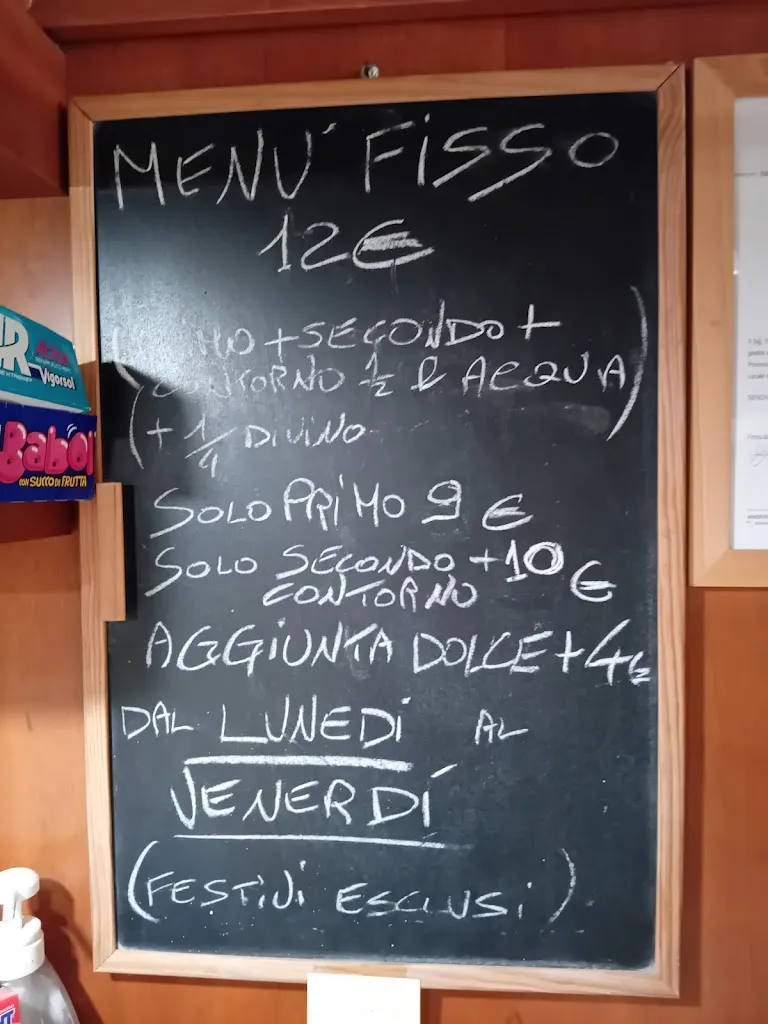 MENU' FISSO
12€
MO + SECONDO +
CONTORNO 1/2 l ACQUA
+ 1/4 DI VINO
SOLO PRIMO 9 €
SOLO SECONDO + 10 €
CONTORNO
AGGIUNTA DOLCE + 4
DAL LUNEDI AL
VENERDÍ
(FESTIVI ESCLUSI)
AIR
Vigorsol
Babol
CON SUCCO DI FRUTTA